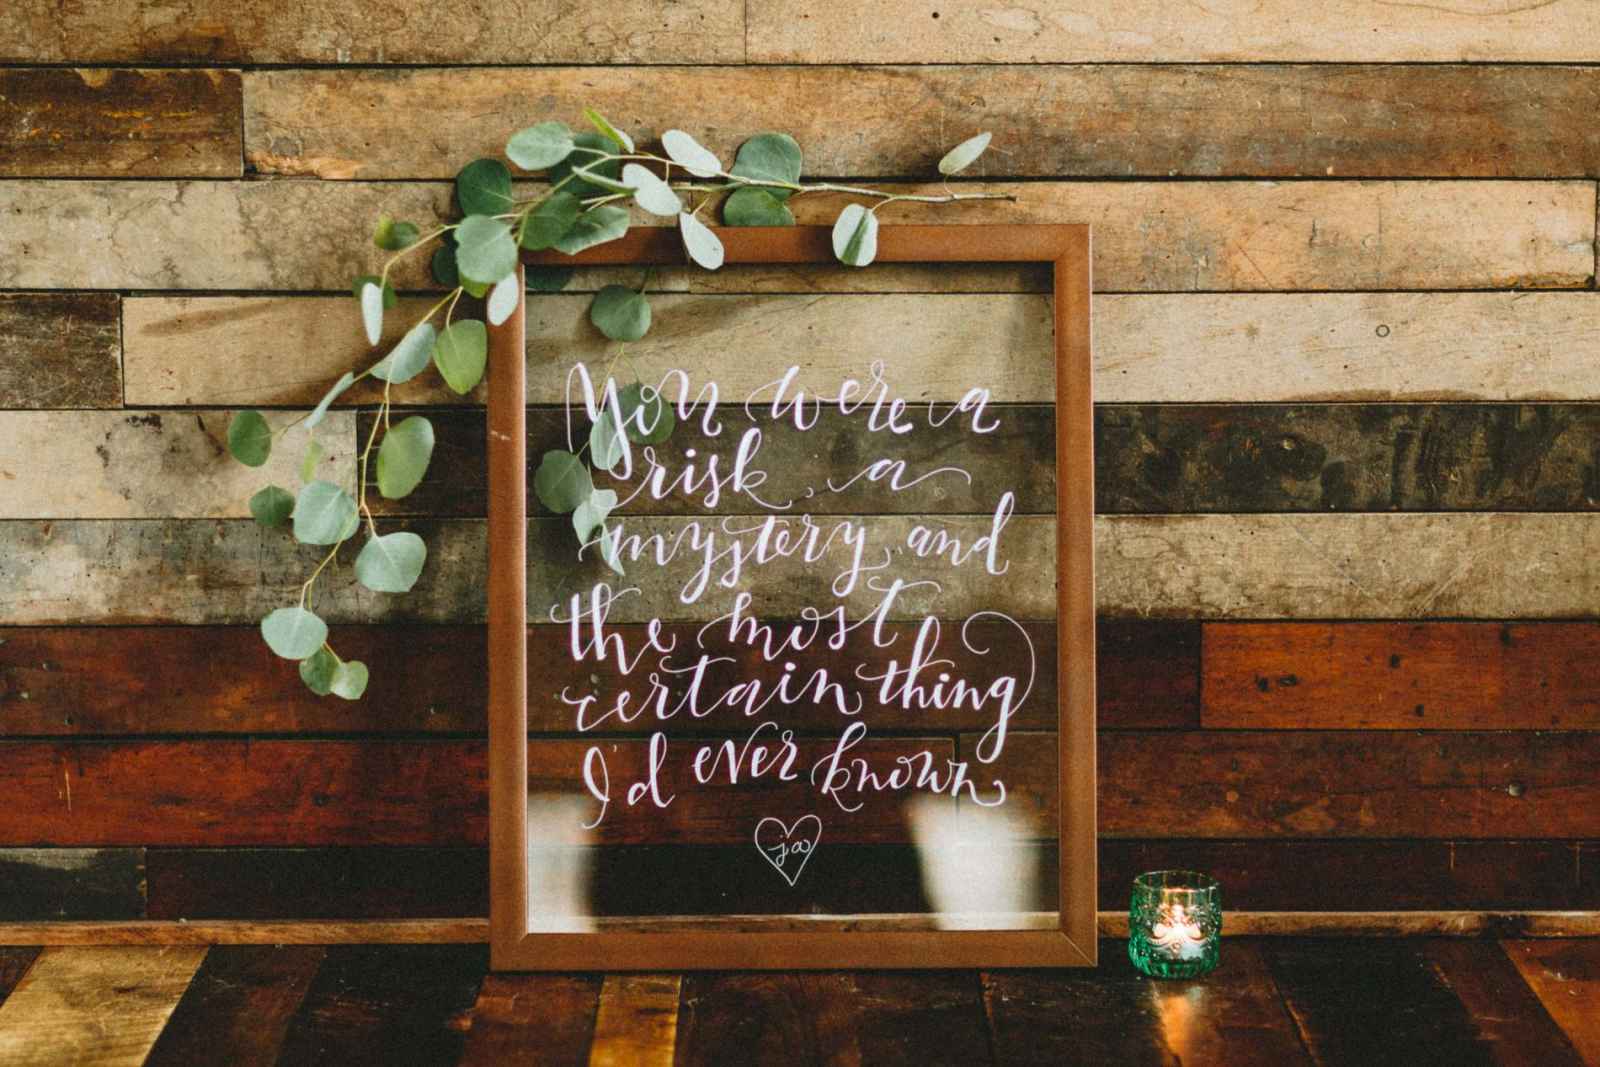 You were a
risk, a
mystery, and
the most
certain thing
I'd ever known